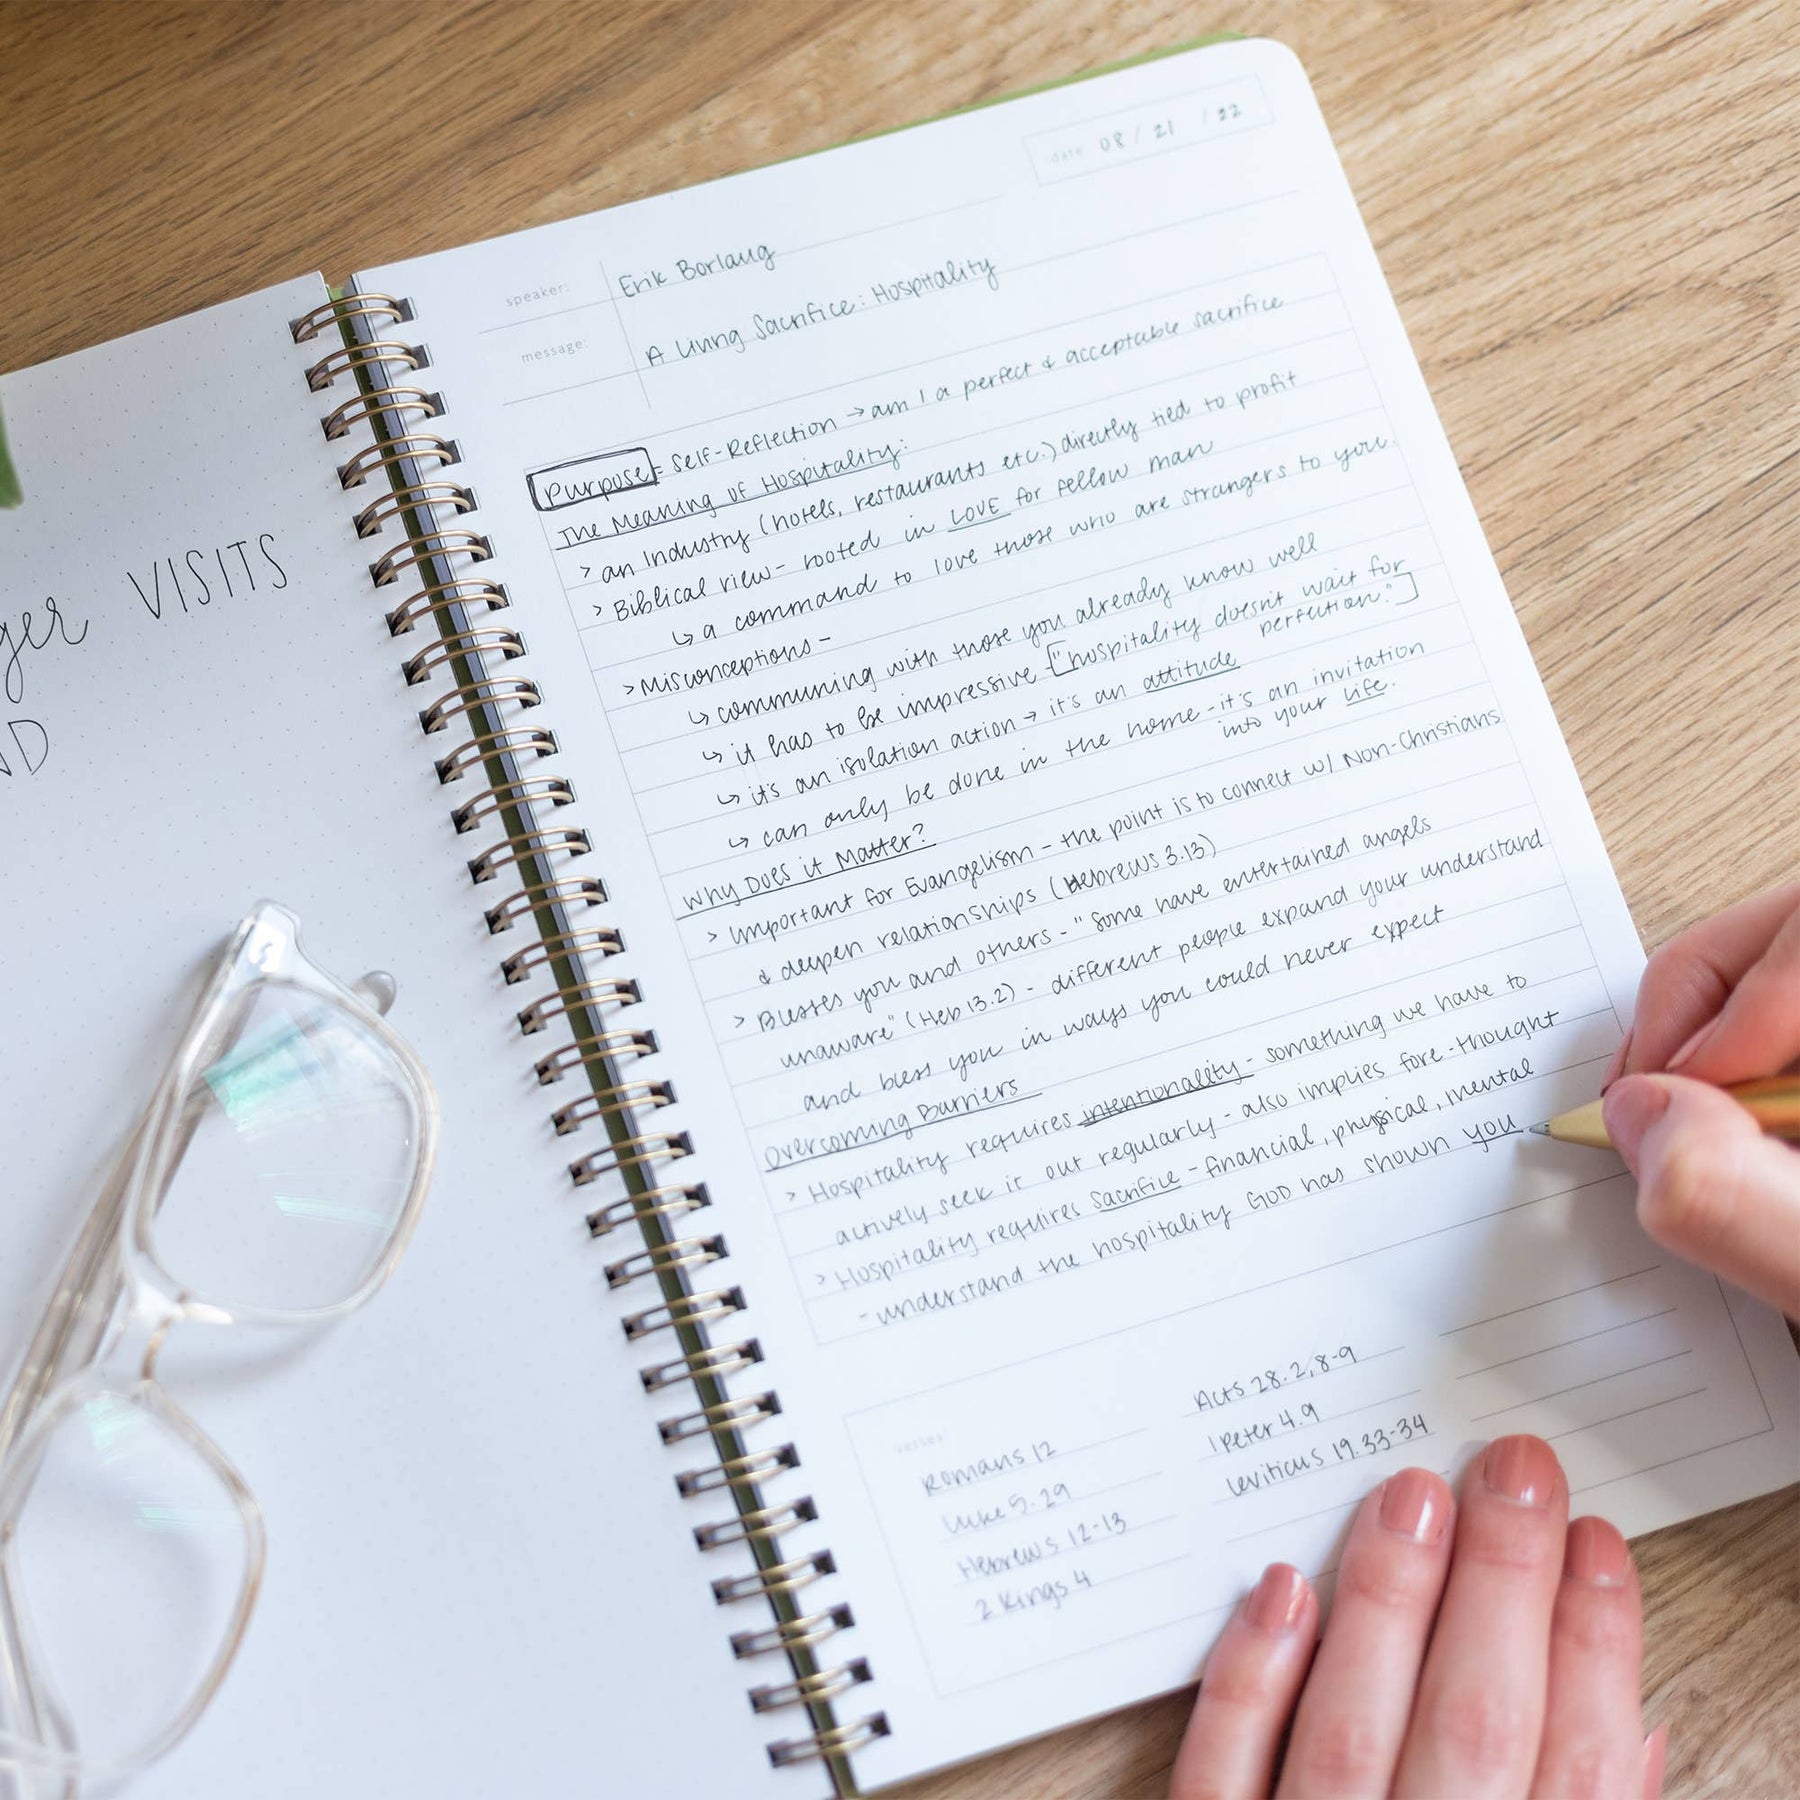 VISITS
date 08 / 21 / 22
speaker: Erik Borlaug
message: A Living Sacrifice: Hospitality
Purpose = Self-Reflection → am I a perfect & acceptable sacrifice
The Meaning of Hospitality:
> an Industry (hotels, restaurants etc.) directly tied to profit
> Biblical view - rooted in LOVE for fellow man
↳ a command to love those who are strangers to you.
> Misconceptions -
↳ communing with those you already know well
↳ it has to be impressive ["hospitality doesn't wait for
perfection."]
↳ it's an isolation action → it's an attitude
↳ can only be done in the home - it's an invitation
into your life.
Why Does it Matter?
> Important for Evangelism - the point is to connect w/ Non-Christians
& deepen relationships (Hebrews 3.13)
> Blesses you and others - "Some have entertained angels
unaware" (Heb 13.2) - different people expand your understand
and bless you in ways you could never expect
Overcoming Barriers
> Hospitality requires intentionality - something we have to
actively seek it out regularly - also implies fore-thought
> Hospitality requires sacrifice - financial, physical, mental
- understand the hospitality GOD has shown you
verses:
Romans 12
Luke 5.29
Hebrews 12-13
2 Kings 4
Acts 28.2, 8-9
1 Peter 4.9
Leviticus 19.33-34